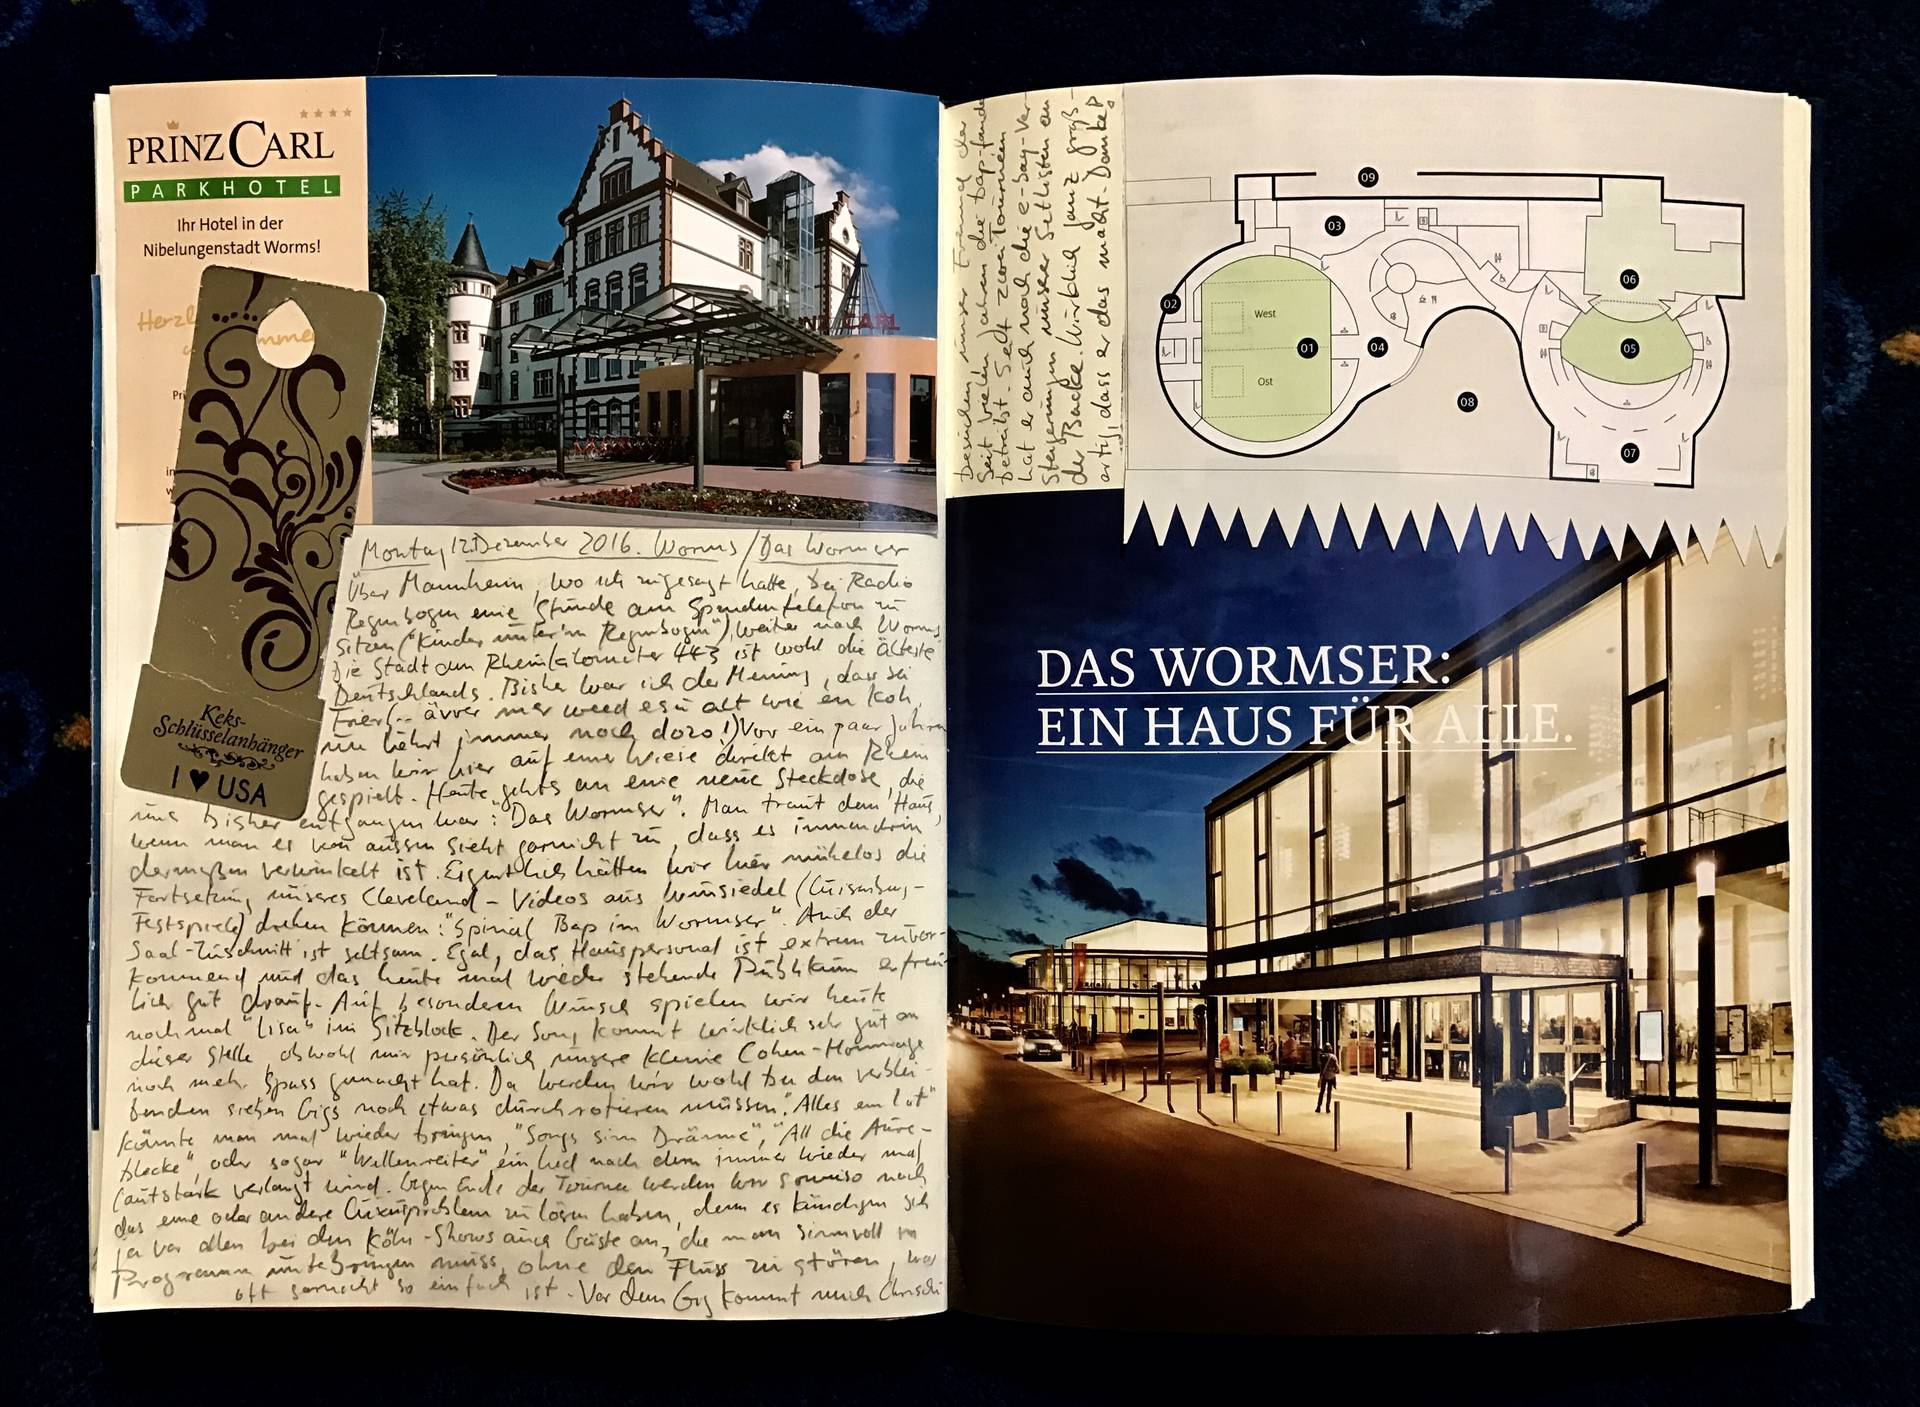 PRINZ CARL
PARKHOTEL
Ihr Hotel in der
Nibelungenstadt Worms!
Keks-
Schlüsselanhänger
I ♥ USA
Montag 12. Dezember 2016. Worms / Das Wormser
Über Mannheim, wo ich zugesagt hatte, bei Radio
Regenbogen eine Stunde am Spendentelefon zu
sitzen ("Kinder unter'm Regenbogen"), weiter nach Worms
Die Stadt am Rheinkilometer 443 ist wohl die älteste
Deutschlands. Bisher war ich der Meinung, dass sei
Trier (.. ävver mer weed esu alt wie en Koh,
un liehrt immer noch dozo!) Vor ein paar Jahren
haben wir hier auf einer Wiese direkt am Rhein
gespielt. Heute gehts an eine neue Steckdose, die
uns bisher entgangen war: "Das Wormser". Man traut dem Haus,
wenn man es von aussen sieht garnicht zu, dass es innendrin
dermaßen verwinkelt ist. Eigentlich hätten wir hier mühelos die
Fortsetzung unseres Cleveland-Videos aus Wunsiedel (Luisenburg-
Festspiele) drehen können: "Spinal Bap im Wormser". Auch der
Saal-Zuschnitt ist seltsam. Egal, das Hauspersonal ist extrem zuvor-
kommend und das heute mal wieder stehende Publikum erfreu-
lich gut drauf. Auf besonderen Wunsch spielen wir heute
nochmal "Lisa" im Sitzblock. Der Song kommt wirklich sehr gut an
dieser Stelle, obwohl mir persönlich unsere kleine Cohen-Hommage
noch mehr Spass gemacht hat. Da werden wir wohl bei den verblei-
benden sieben Gigs noch etwas durchrotieren müssen. "Alles em Lot"
könnte man mal wieder bringen, "Songs sinn Dräume", "All die Aure-
blecke", oder sogar "Wellenreiter", ein Lied nach dem immer wieder mal
lautstark verlangt wird. Gegen Ende der Tournee werden wir sowieso noch
das eine oder andere Luxusproblem zu lösen haben, denn es kündigen sich
ja vor allem bei den Köln-Shows auch Gäste an, die man sinnvoll im
Programm unterbringen muss, ohne den Fluss zu stören, was
oft garnicht so einfach ist. Vor dem Gig kommt mich Christi
besuchen, unser Freund der
seit vielen Jahren die bap-fan.de
betreibt. Seit zwei Tourneen
hat er auch noch die e-bay-Ver-
steigerungen unserer Setlisten an
der Backe. Wirklich janz groß-
artig, dass er das macht. Danke!
09
03
02
06
West
01
04
05
Ost
08
07
DAS WORMSER:
EIN HAUS FÜR ALLE.